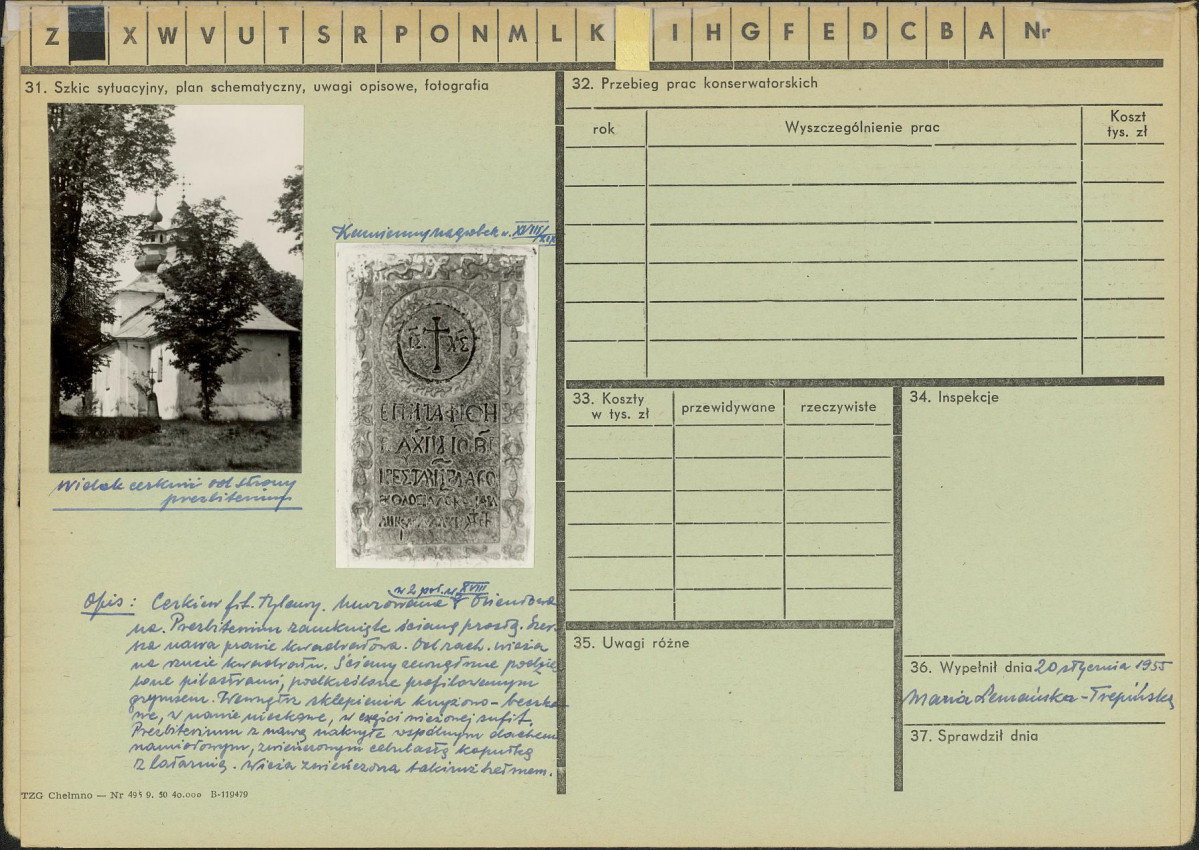 Z X W V U T S R P O N M L K I H G F E D C B A Nr
31. Szkic sytuacyjny, plan schematyczny, uwagi opisowe, fotografia
Kamienny nagrobek w. XVIII/XIX
ІС ХС
Widok cerkwi od strony
prezbiterium
w 2 poł. w. XVIII
Opis: Cerkiew fil. Tylawy. Murowana Orientowa
na. Prezbiterium zamknięte ścianą prostą. Szer-
sza nawa prawie kwadratowa. Od zach. wieża
na rzucie kwadratu. Ściany zewnętrzne podzie
lone pilastrami, podkreślone profilowanym
gzymsem. Wewnątrz sklepienia krzyżowo-beczko
we, w nawie nieckowe, w części wieżowej sufit.
Prezbiterium z nawą nakryte wspólnym dachem
namiotowym, zwieńczonym cebulastą kopułką
z latarnią. Wieża zwieńczona takimż hełmem.
TZG Chełmno — Nr 495 9. 50 40.000 B-119479
32. Przebieg prac konserwatorskich
rok
Wyszczególnienie prac
Koszt
tys. zł
33. Koszty
w tys. zł
przewidywane
rzeczywiste
34. Inspekcje
35. Uwagi różne
36. Wypełnił dnia 20 stycznia 1955
Maria Lemańska-Trepińska
37. Sprawdził dnia